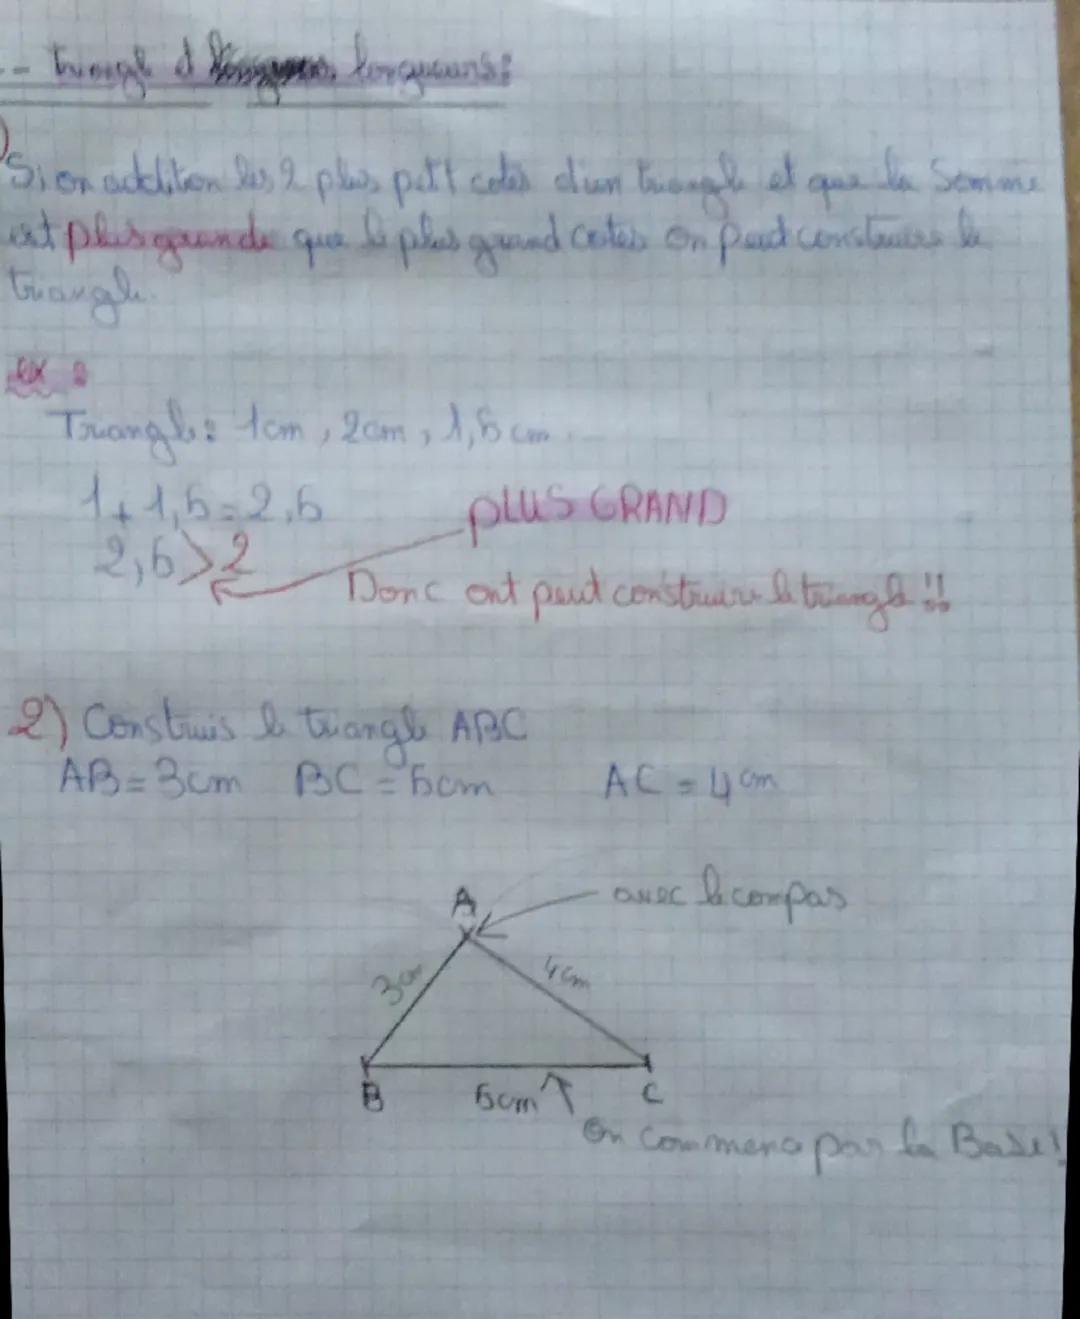 - triangle et longueurs :
)
Si on addition les 2 plus petit cotés d'un triangle et que la somme
est plus grande que le plus grand cotés on peut construire le
triangle.
ex :
Triangle : 1cm, 2cm, 1,5 cm.
1 + 1,5 = 2,5
PLUS GRAND
2,5 > 2
Donc ont peut construire le triangle !!
2) Construis le triangle ABC
AB = 3cm BC = 5cm AC = 4cm
A
avec le compas
3cm
4cm
B
5cm
C
On commenc par la Base !